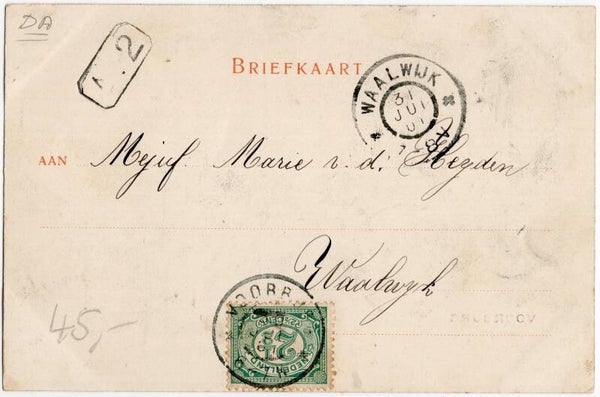 DA
2
BRIEFKAART
WAALWIJK
31
JUL
AAN Mejuf. Marie v. d. Heyden
Waalwyk
VOORB
NEDERLAND
2½
45,-
VOORBURG